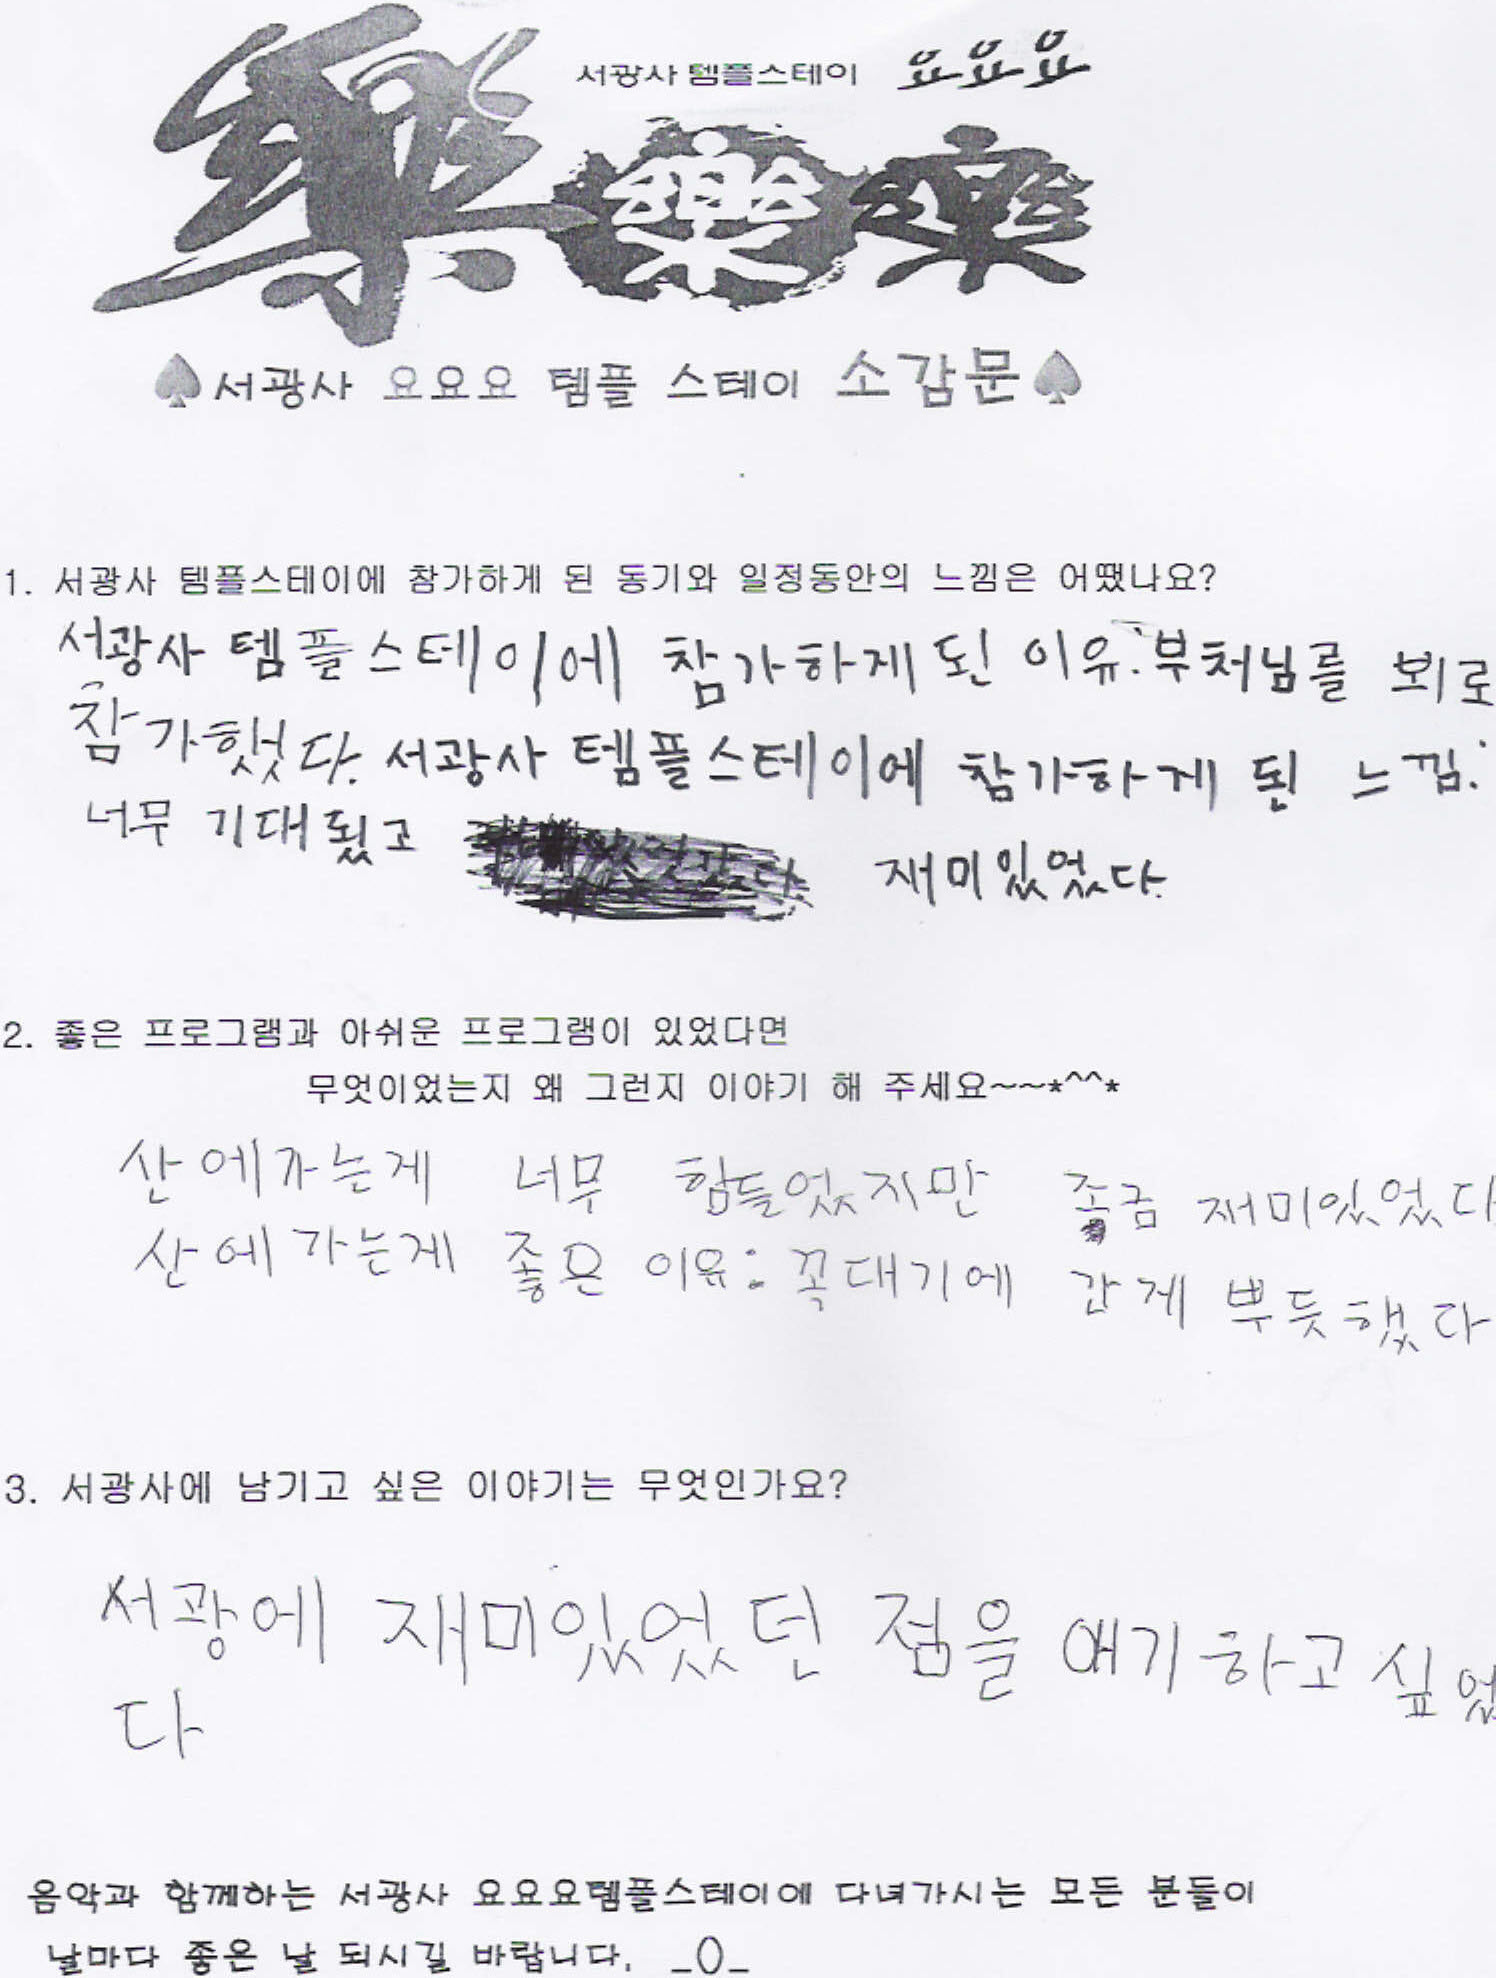 서광사 템플스테이 요요요
樂 樂 樂
♠서광사 요요요 템플 스테이 소감문♠
1. 서광사 템플스테이에 참가하게 된 동기와 일정동안의 느낌은 어땠나요?
서광사 템플스테이에 참가하게 된 이유:부처님를 뵈로
참가했다. 서광사 템플스테이에 참가하게 된 느낌:
너무 기대됬고 재미있었다.
2. 좋은 프로그램과 아쉬운 프로그램이 있었다면
무엇이었는지 왜 그런지 이야기 해 주세요~~*^^*
산에가는게 너무 힘들었지만 조금 재미있었다
산에가는게 좋은 이유: 꼭대기에 간게 뿌듯했다
3. 서광사에 남기고 싶은 이야기는 무엇인가요?
서광에 재미있었던 점을 얘기하고싶었
다
음악과 함께하는 서광사 요요요템플스테이에 다녀가시는 모든 분들이
날마다 좋은 날 되시길 바랍니다. _()_